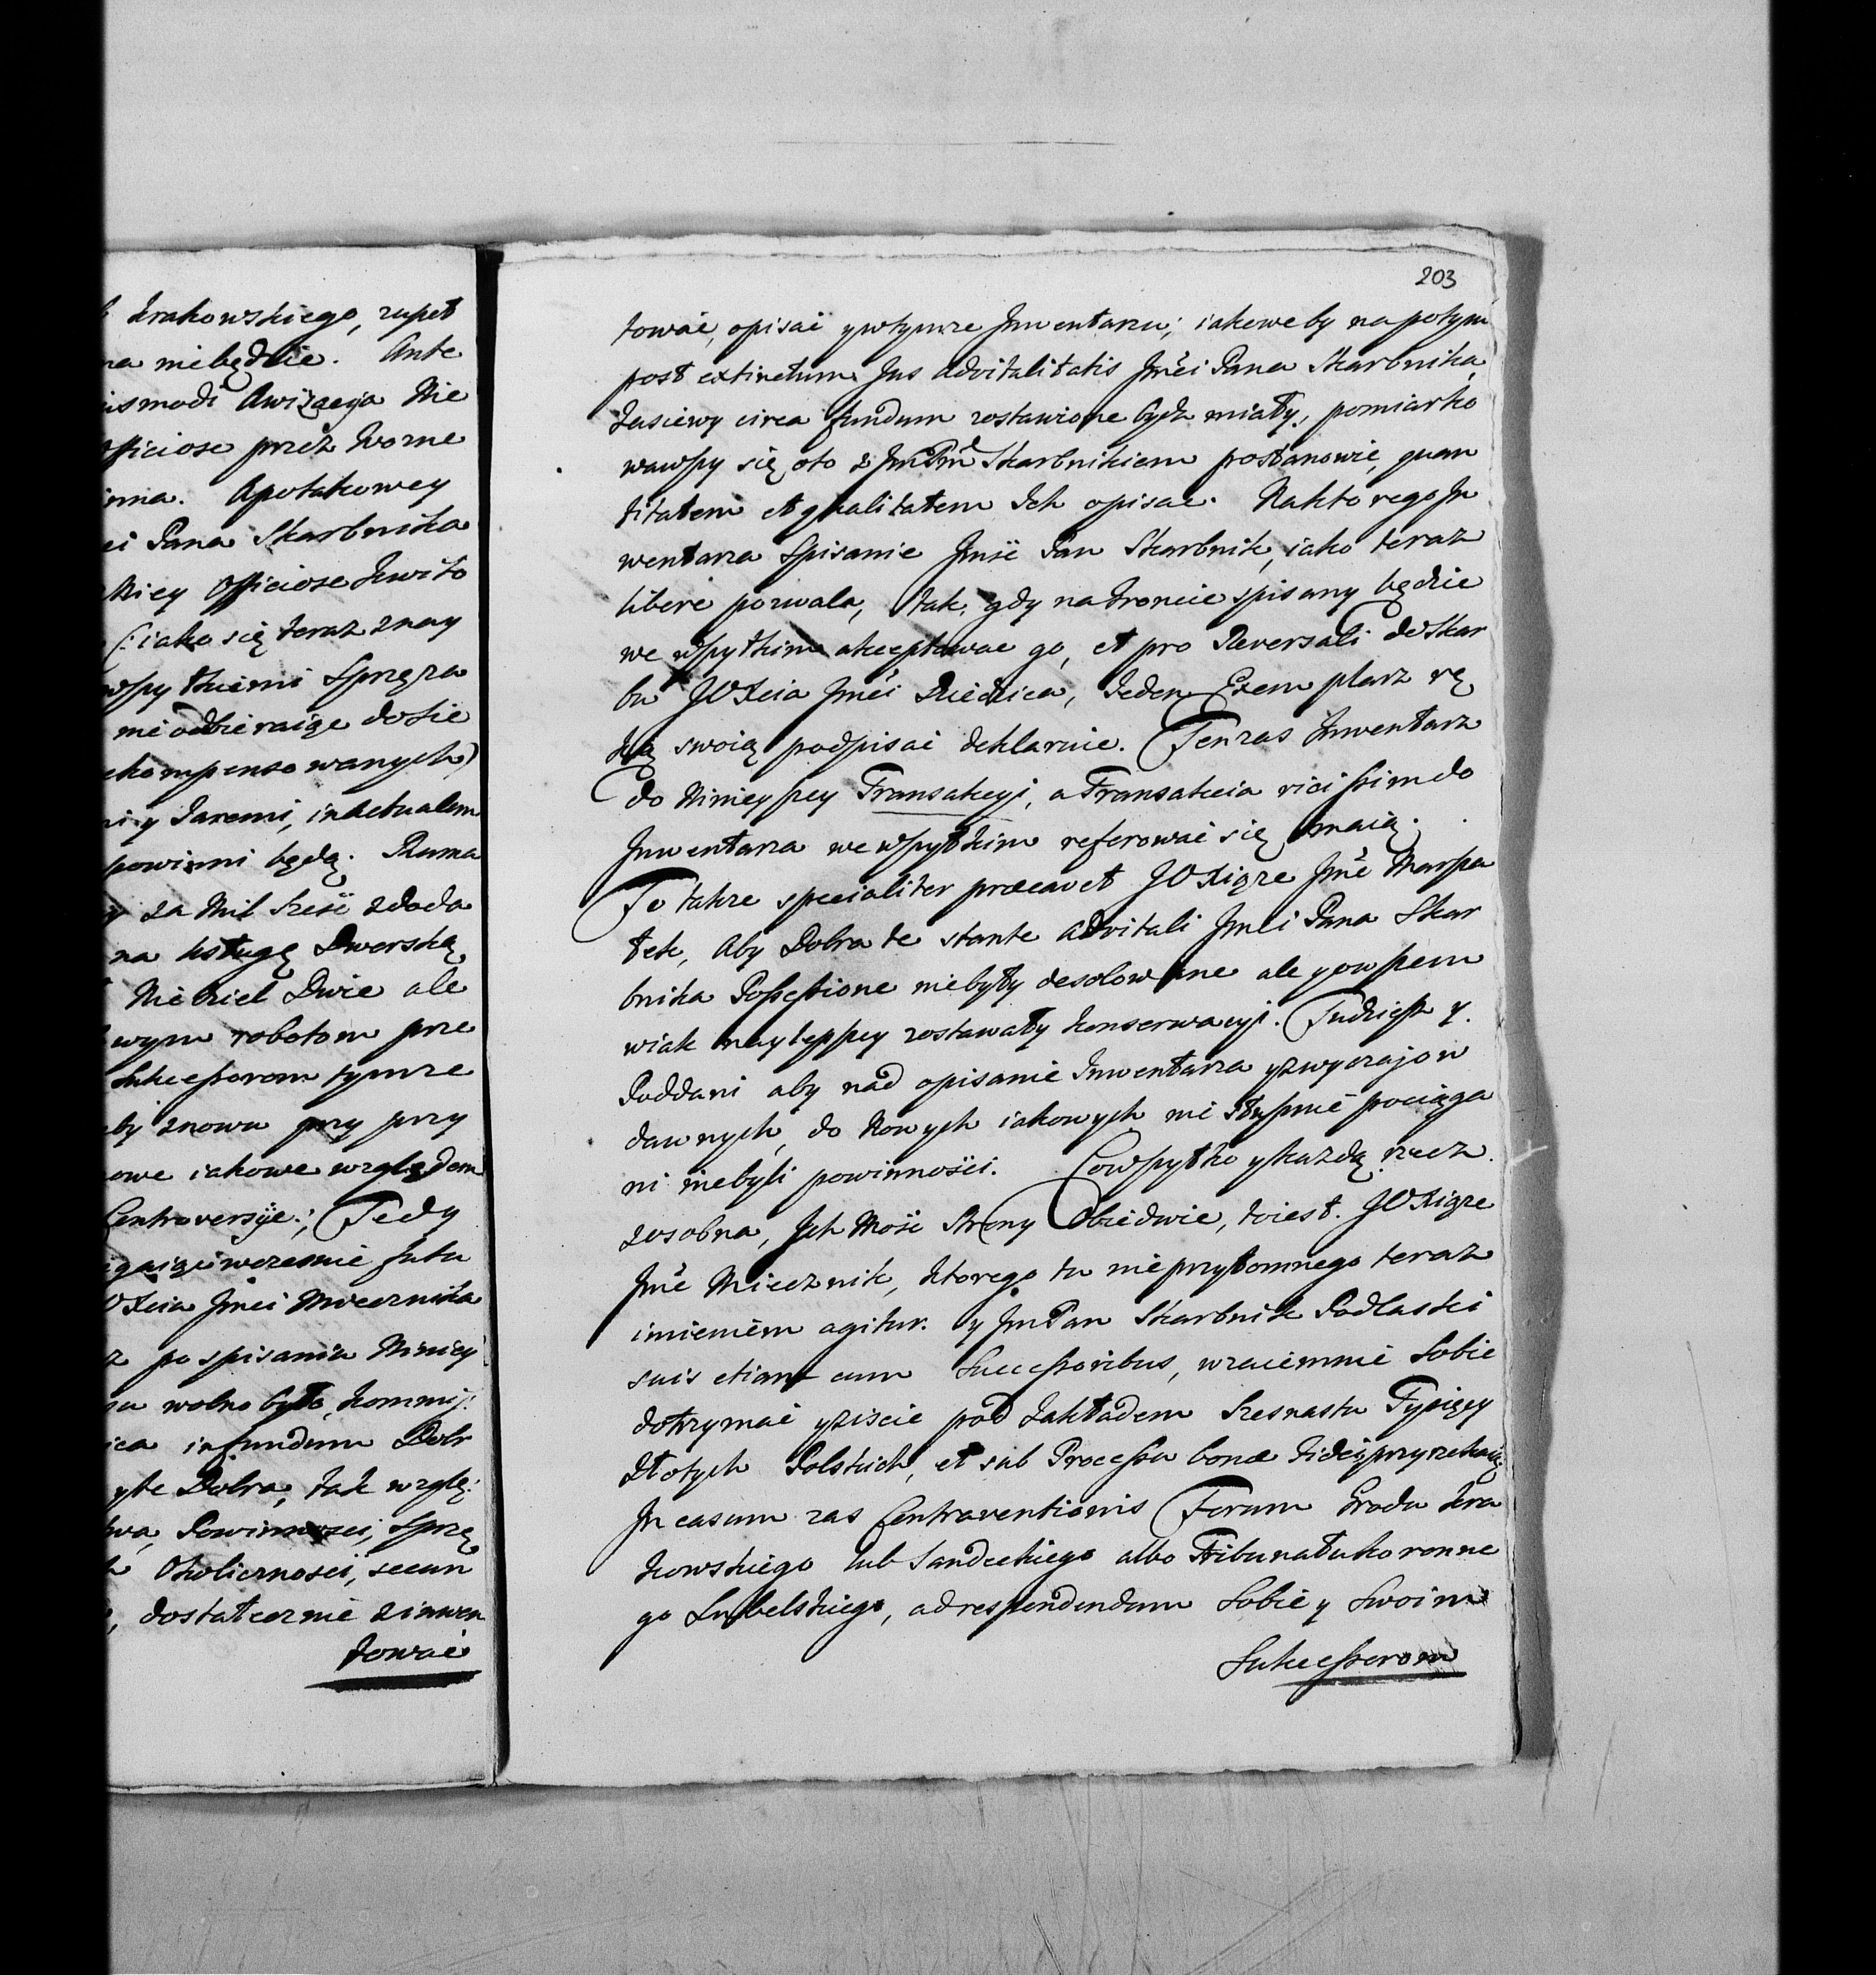 Krakowskiego, zupeł
na niebędzie. Ante
ismodi Awizacya Nie
officiose przez Wozne
inna. Apotakowey
ei Pana Skarbnika
kiey Officiose Kwito
(: iako się teraz znay
wszytkiemi Sprzęza
mi odbieraiąc dosie
ekompensowanych)
ni y Jaremi, in actualem
powinni będą. Ruma
y za Mil Sześć zdoda
na usługę Dworską
Niedziel Dwie ale
wym robotom prze
Sukcessorom tymze
by znowu przy przy
owe iakowe względem
Controversÿe:; Tedy
igaiąc wczesnie futu
O Xcia Jmci Miecznika
z po spisaniu Niniey
su wolno było, Kommis:
ica in fundum Dobr
yte Dobra, tak wzglę:
wa, Powinnosci, Sprzę
Okolicznosci, secun
, dostatecznie zinwen
towac
203
towac, opisac ywtymze Jnwentarzu; iakoweby napotym
post extinctum Jus Advitalitatis Jmci Pana Skarbnika,
Zasiewy circa fundum zostawione bydz miały, pomiarko
wawszy się oto z JmPm Skarbnikiem postanowic, quan
titatem et qualitatem Jch opisac. Naktorego Jn
wentarza Spisanie Jmsc Pan Skarbnik, iako teraz
libere pozwala, tak, gdy nagroncie spisany będzie
we wszytkim akceptowac go, et pro Reversali do Skar
bu JO Xcia Jmci Dziedzica, Jeden Exemplarz rę
ką swoią podpisac deklaruie. Tenzas Jnwentarz
do Ninieyszey Transakcyi, a Transakcia vicissim do
Jnwentarza we wszytkim referowac się maią.
To takze specialiter præcavet JO Xiąze Jmc Marsza
łek, Aby Dobra te stante advitali Jmci Pana Skar
bnika Possessione niebyły desolowane ale yowszem
wiak naylepszey zostawały Konserwacyi. Tudziesz y
Poddani aby nad opisanie Jnwentarza yzwyczajow
dawnych, do Nowych iakowych nie słusznie pociąga
ni niebyli powinnosci. Cowszytko ykazdą rzecz
zosobna, Jch Mosc Strony Obiedwie, toiest. JO Xiąze
Jmc Miecznik, Ktorego tu nieprzytomnego teraz
imieniem agitur. y JmPan Skarbnik Podlaski
suis etiam cum Successoribus, wzaiemnie Sobie
dotrzymac yziscic pod Zakładem Szesnastu Tysięcy
Złotych Polskich, et sub Processu bonæ fidei przyrzekaią
Jn casum zas Contraventionis Forum Grodu Kra
kowskiego lub Sandeckiego albo Tribunału koronne
go Lubelskiego, ad respondendum Sobie y Swoim
Sukcessorom